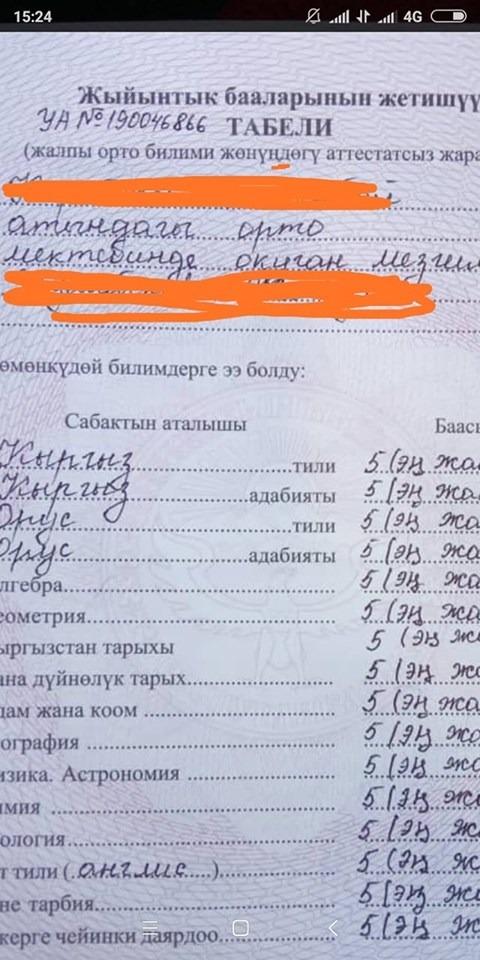 15:24 4G
Жыйынтык бааларынын жетишүү
УА № 190046866 ТАБЕЛИ
(жалпы орто билими жөнүндөгү аттестатсыз жара
атындагы орто
мектебинде окиган мезгил
өмөнкүдөй билимдерге ээ болду:
Сабактын аталышы Баасы
Кыргыз тили 5 (эң жа
Кыргыз адабияты 5 (эң жа
Орус тили 5 (эң жа
Орус адабияты 5 (эң жа
лгебра 5 (эң жа
еометрия 5 (эң жа
ыргызстан тарыхы 5 (эң жа
ана дүйнөлүк тарых 5 (эң жа
дам жана коом 5 (эң жа
ография 5 (эң жа
изика. Астрономия 5 (эң жа
имия 5 (эң жа
ология 5 (эң жа
т тили (англис) 5 (эң ж
не тарбия 5 (эң ж
керге чейинки даярдоо 5 (эң ж